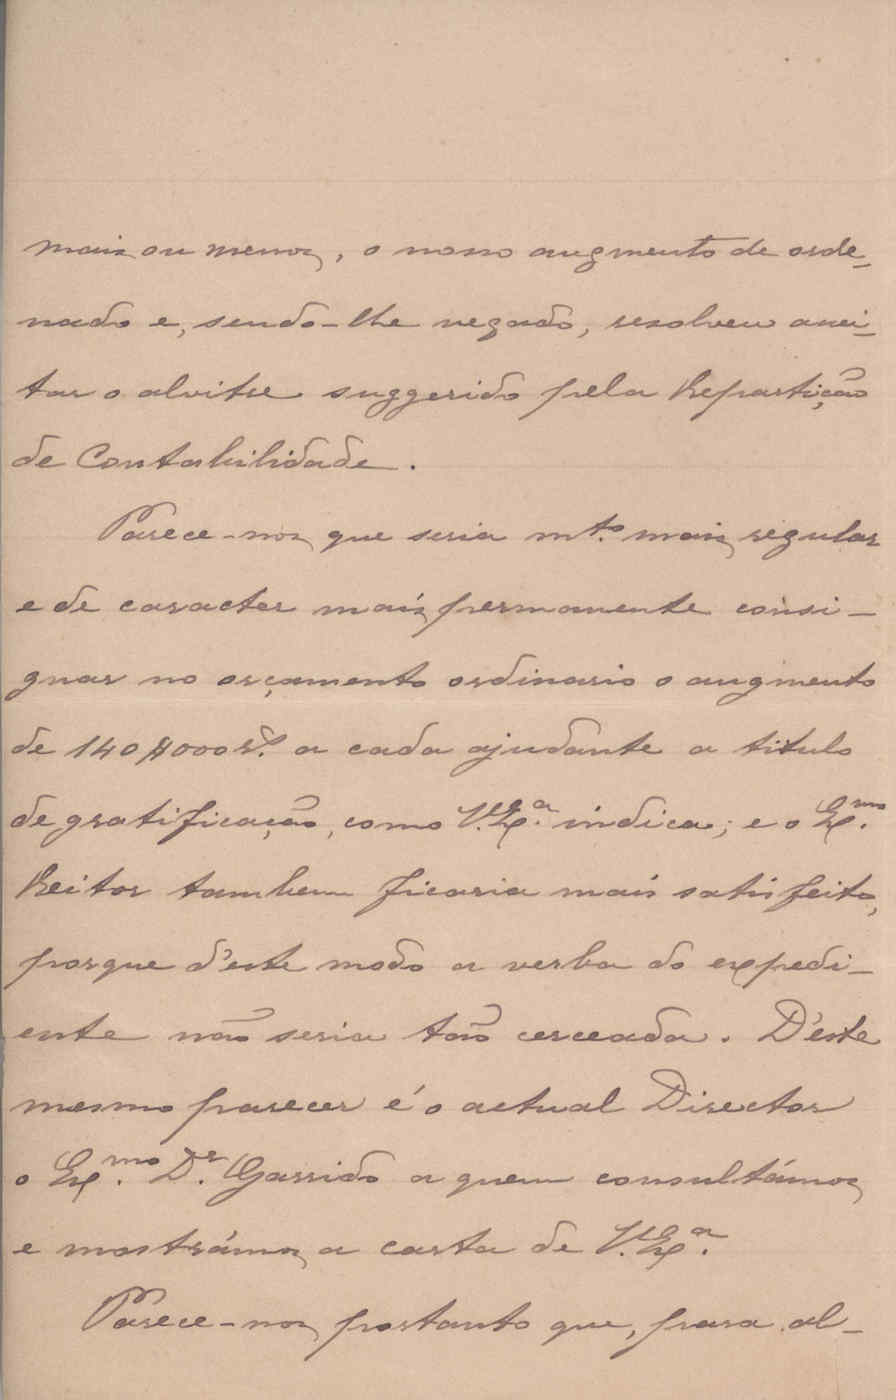 mais ou menos, o nosso augmento de orde-
nado e, sendo-lhe negado, resolveu acei-
tar o alvitre suggerido pela Repartição
de Contabilidade.
Parece-nos que seria mt.º mais regular
e de caracter mais permanente consi-
gnar no orçamento ordinario o augmento
de 140$000 rs. a cada ajudante a titulo
de gratificação, como V. Ex.ª indica; e o Ex.mo
Reitor tambem ficaria mais satisfeito,
porque d'este modo a verba do expedi-
ente não seria tão cerceada. D'este
mesmo parecer é o actual Director
o Ex.mo Dr. Garrido a quem consultámos
e mostrámos a carta de V. Ex.ª.
Parece-nos portanto que, para al-